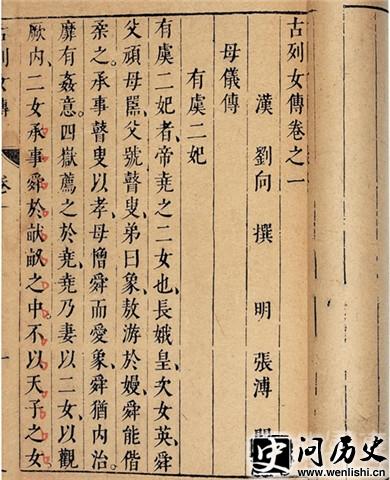 古列女傳卷之一
漢 劉向 撰 明 張溥
母儀傳
有虞二妃
有虞二妃者、帝堯之二女也、長娥皇、次女英、舜
父頑母嚚、父號瞽叟、弟曰象、敖游於嫚、舜能偕
柔之、承事瞽叟以孝、母憎舜而愛象、舜猶内治、
靡有姦意、四嶽薦之於堯、堯乃妻以二女、以觀
厥内、二女承事舜於畎畝之中、不以天子之女
古列女傳 卷一 一
问历史
www.wenlishi.cn